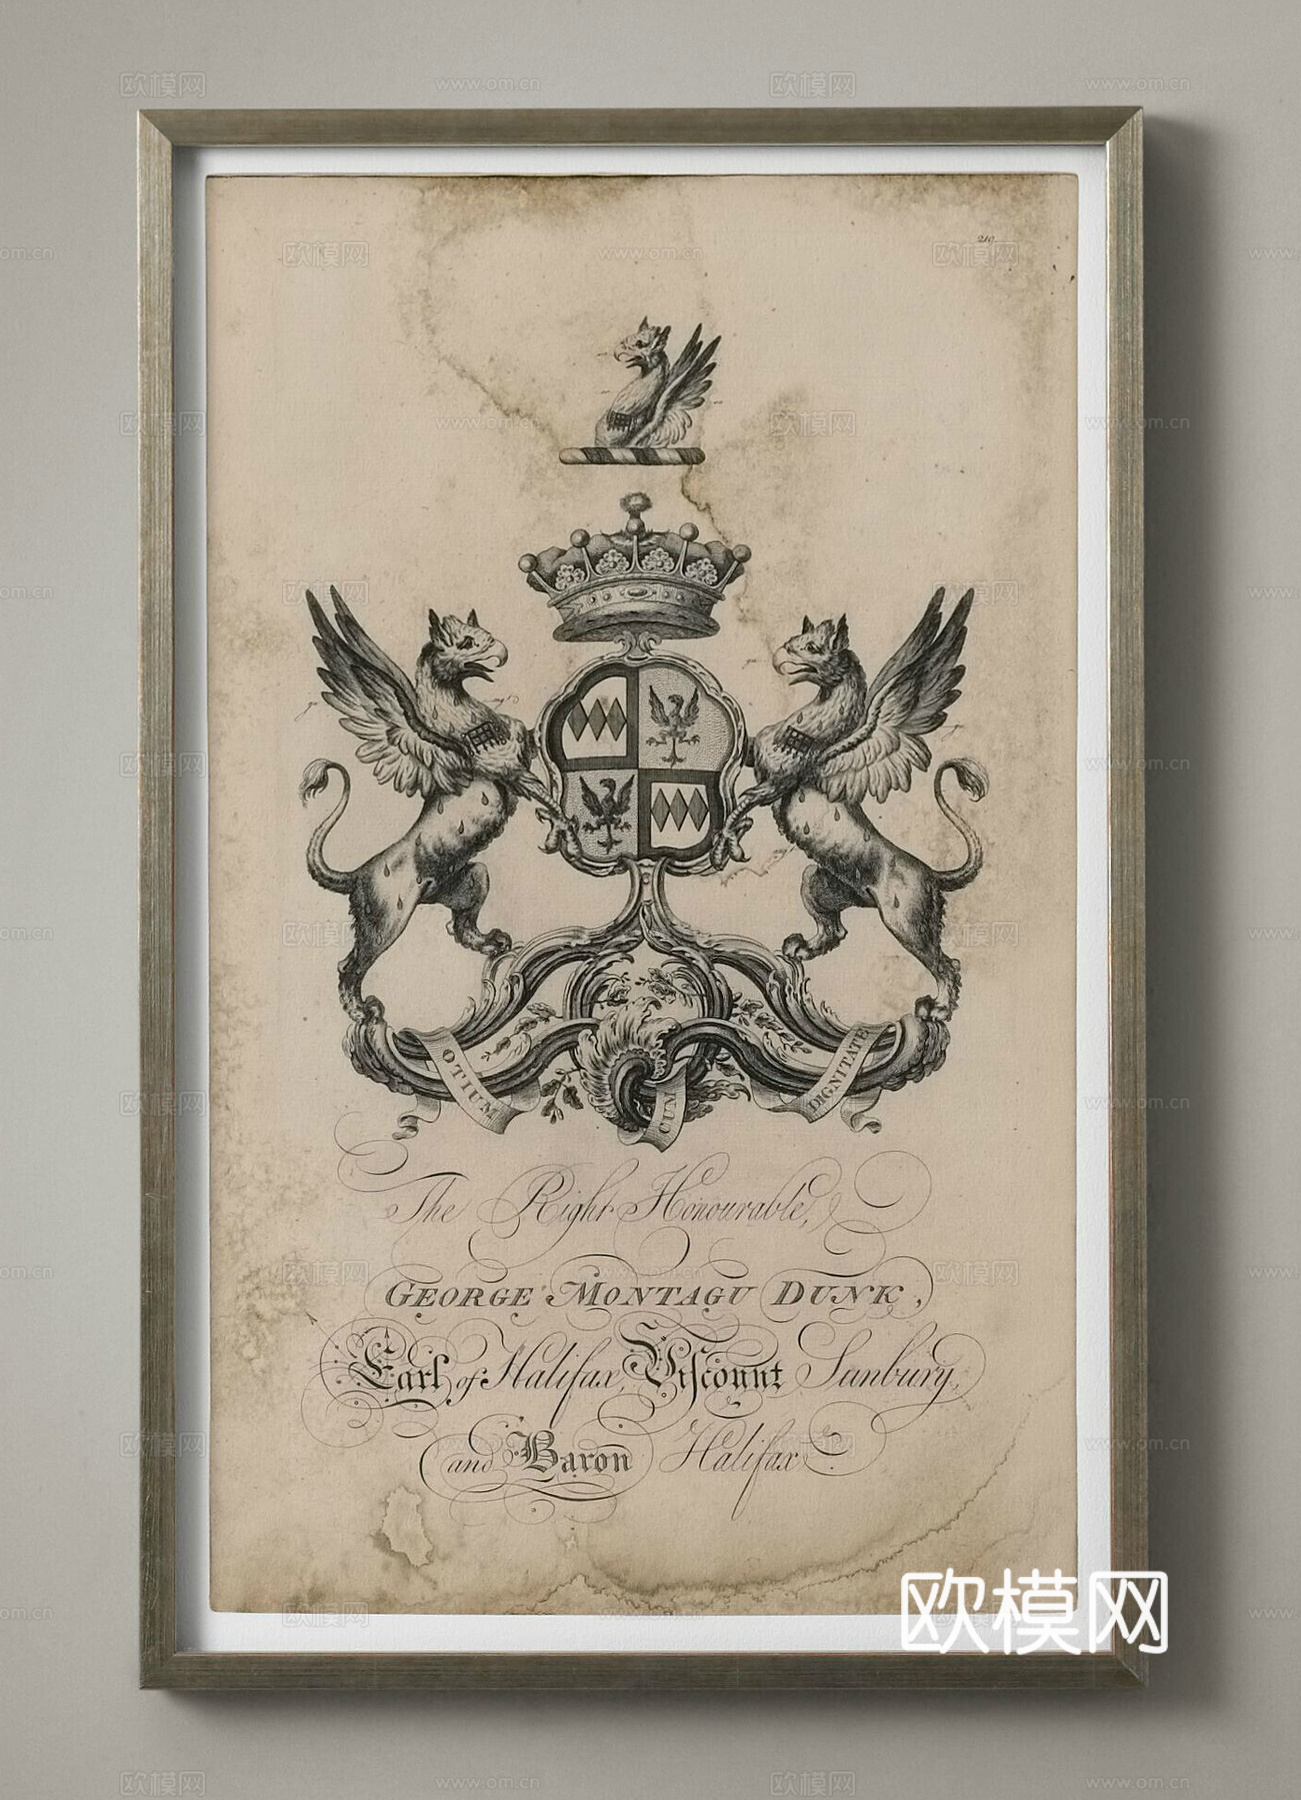 210
OTIUM
CUM
DIGNITATE
The Right Honourable,
GEORGE MONTAGU DUNK,
Earl of Halifax, Viſcount Sunbury,
and Baron Halifax &c.
欧模网
www.om.cn